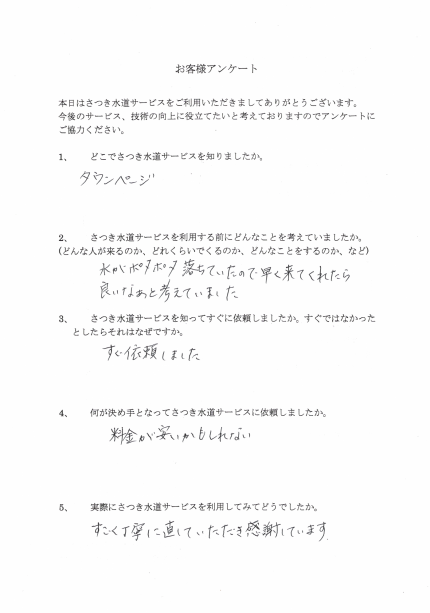 お客様アンケート
本日はさつき水道サービスをご利用いただきましてありがとうございます。
今後のサービス、技術の向上に役立てたいと考えておりますのでアンケートに
ご協力ください。
1、 どこでさつき水道サービスを知りましたか。
タウンページ
2、 さつき水道サービスを利用する前にどんなことを考えていましたか。
(どんな人が来るのか、どれくらいでくるのか、どんなことをするのか、など)
水がポタポタ落ちていたので早く来てくれたら
良いなあと考えていました
3、 さつき水道サービスを知ってすぐに依頼しましたか。すぐではなかった
としたらそれはなぜですか。
すぐ依頼しました
4、 何が決め手となってさつき水道サービスに依頼しましたか。
料金が安いかもしれない
5、 実際にさつき水道サービスを利用してみてどうでしたか。
すごく丁寧に直していただき感謝しています